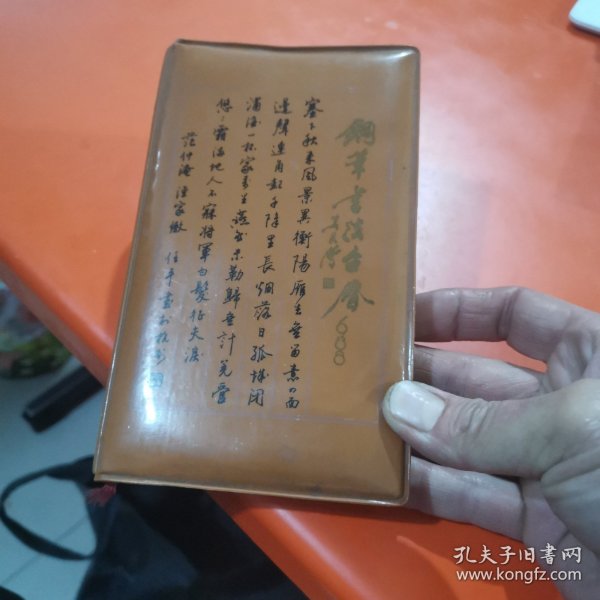 鋼筆書法台曆
塞下秋来風景異衡陽雁去無留意四面
邊聲連角起千嶂里長烟落日孤城閉
濁酒一杯家萬里燕然未勒歸無計羌管
悠々霜满地人不寐將軍白髮征夫淚
范仲淹漁家傲 任平書於杭
孔夫子旧书网
www.kongfz.com